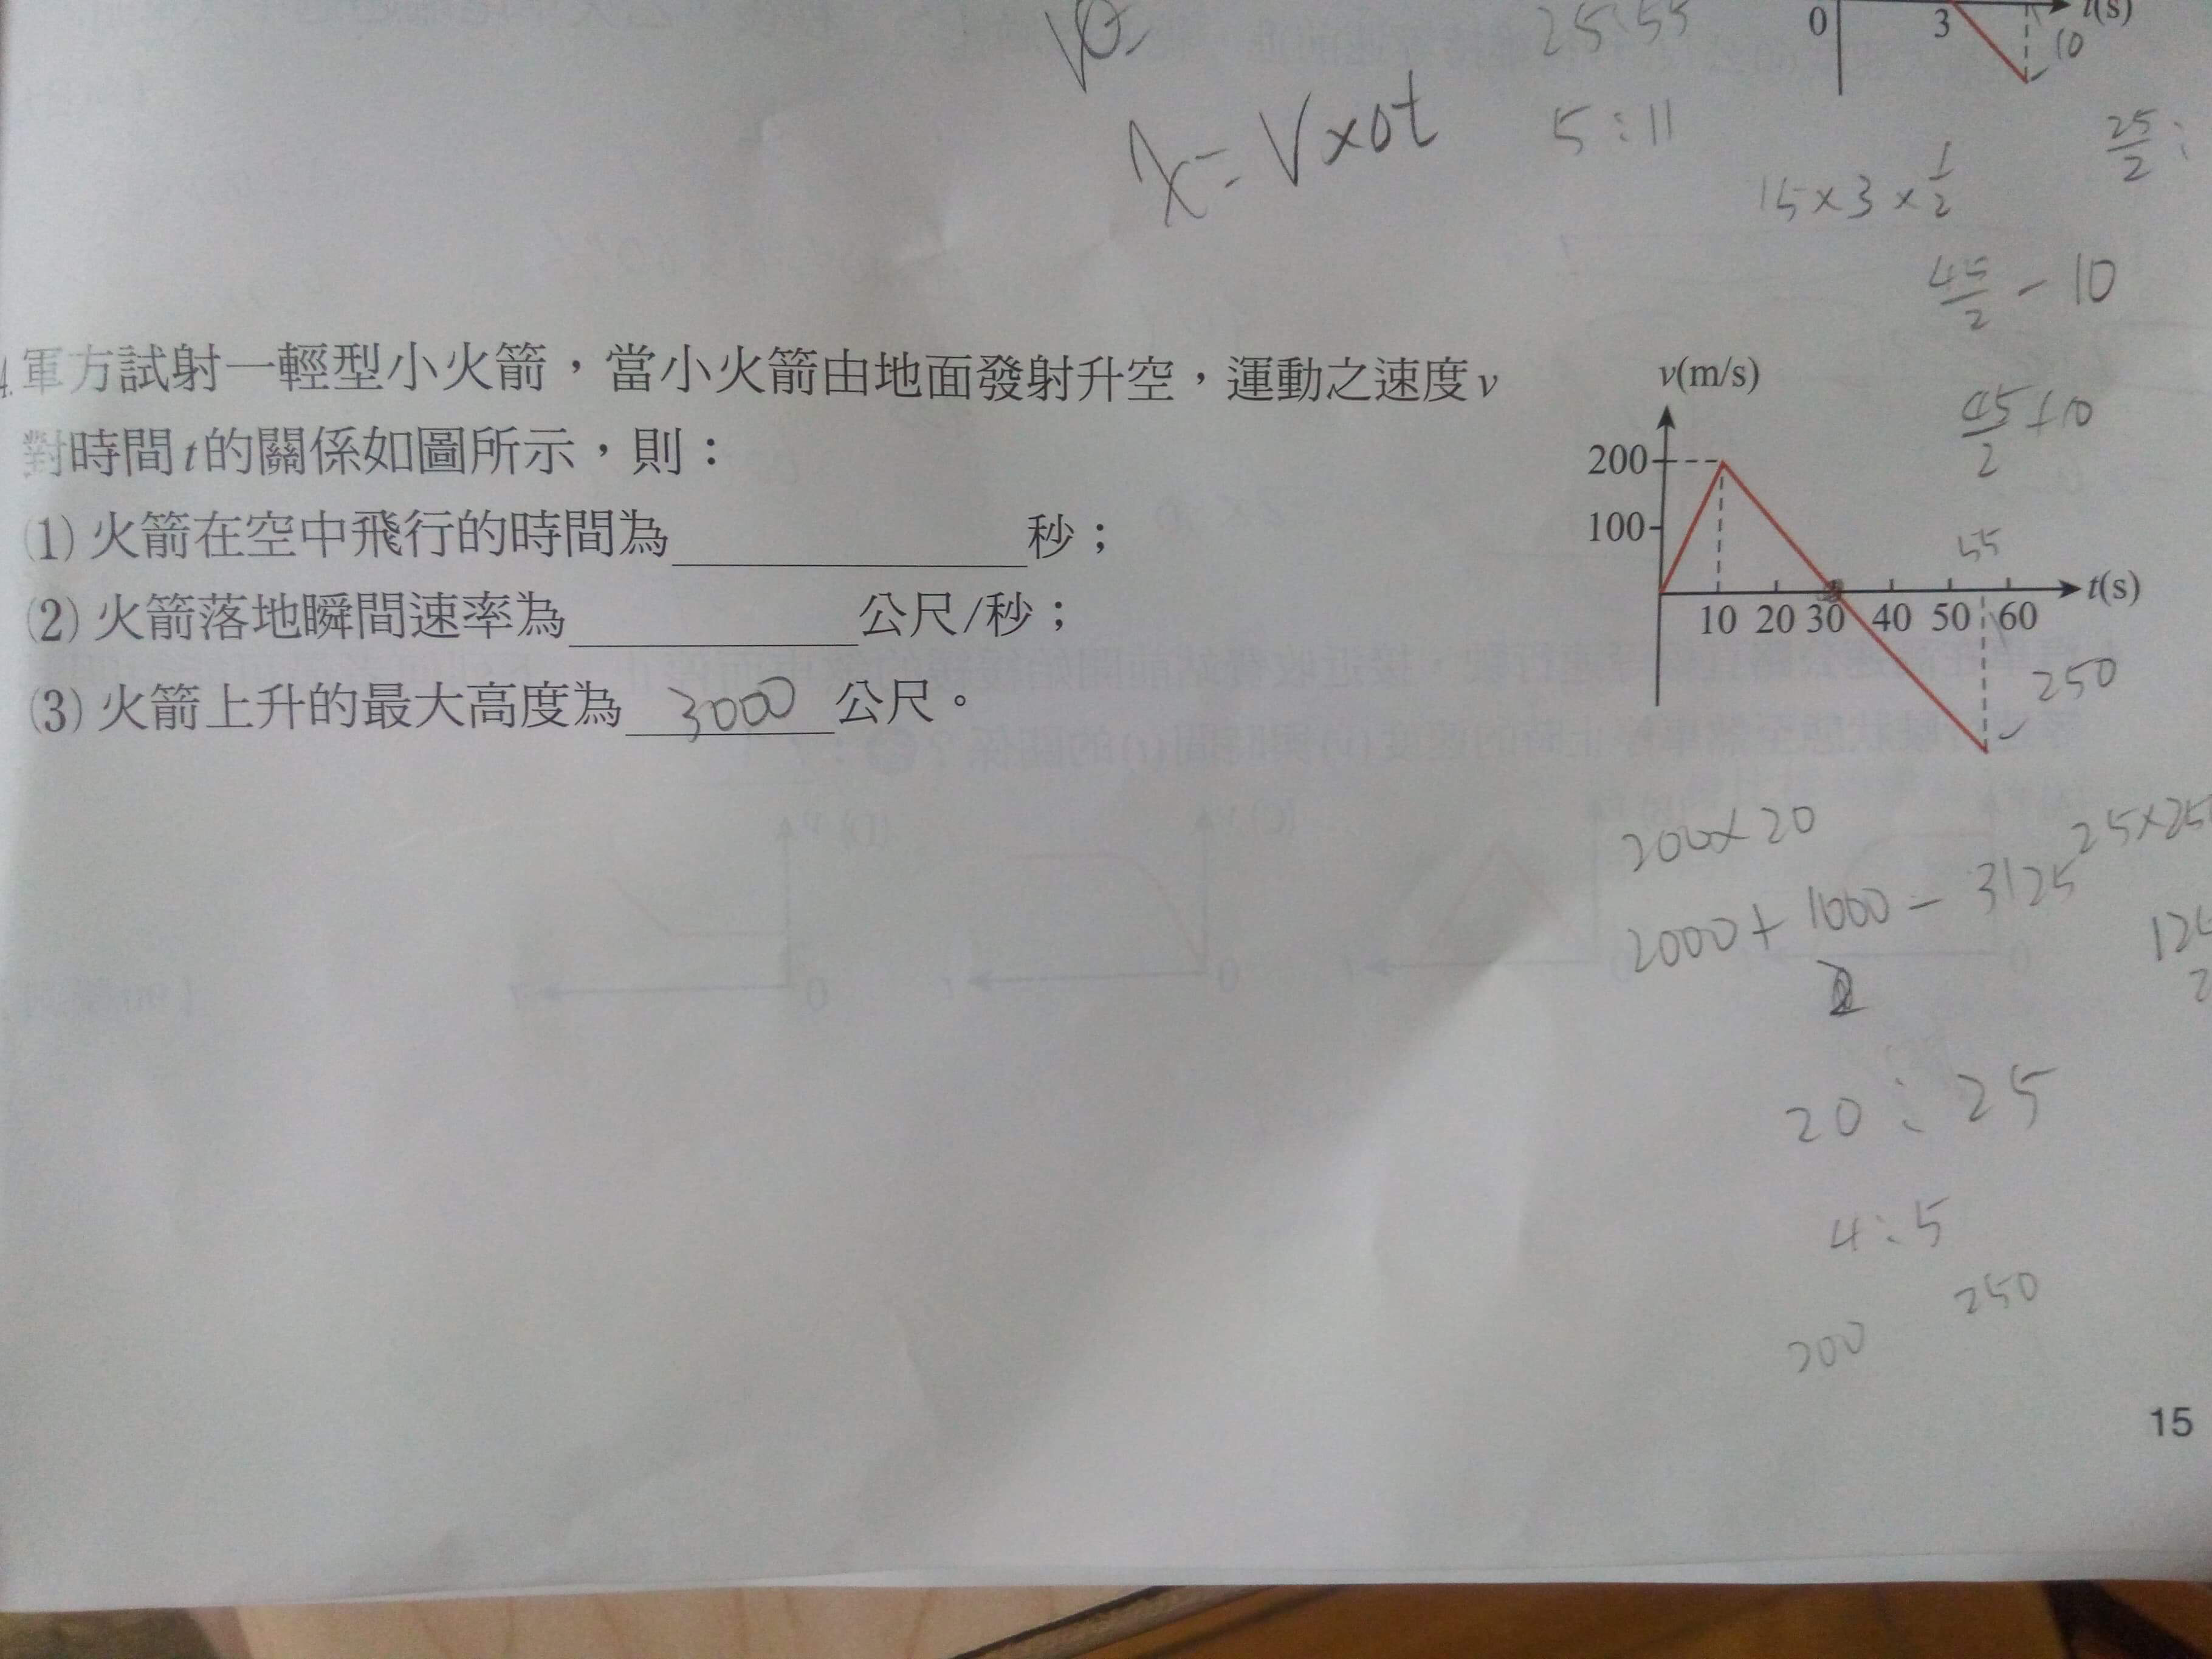 25:55
0
3
t(s)
10
x = V×Δt
5:11
25/2 :
15×3×1/2
45/2 - 10
4.軍方試射一輕型小火箭，當小火箭由地面發射升空，運動之速度v
對時間t的關係如圖所示，則：
(1) 火箭在空中飛行的時間為 秒；
(2) 火箭落地瞬間速率為 公尺/秒；
(3) 火箭上升的最大高度為 3000 公尺。
v(m/s)
45/2 + 10
200
100
55
10 20 30 40 50 60
t(s)
250
200×20
25×25
2000 + 1000 - 3125
2
20 : 25
4:5
250
200
15